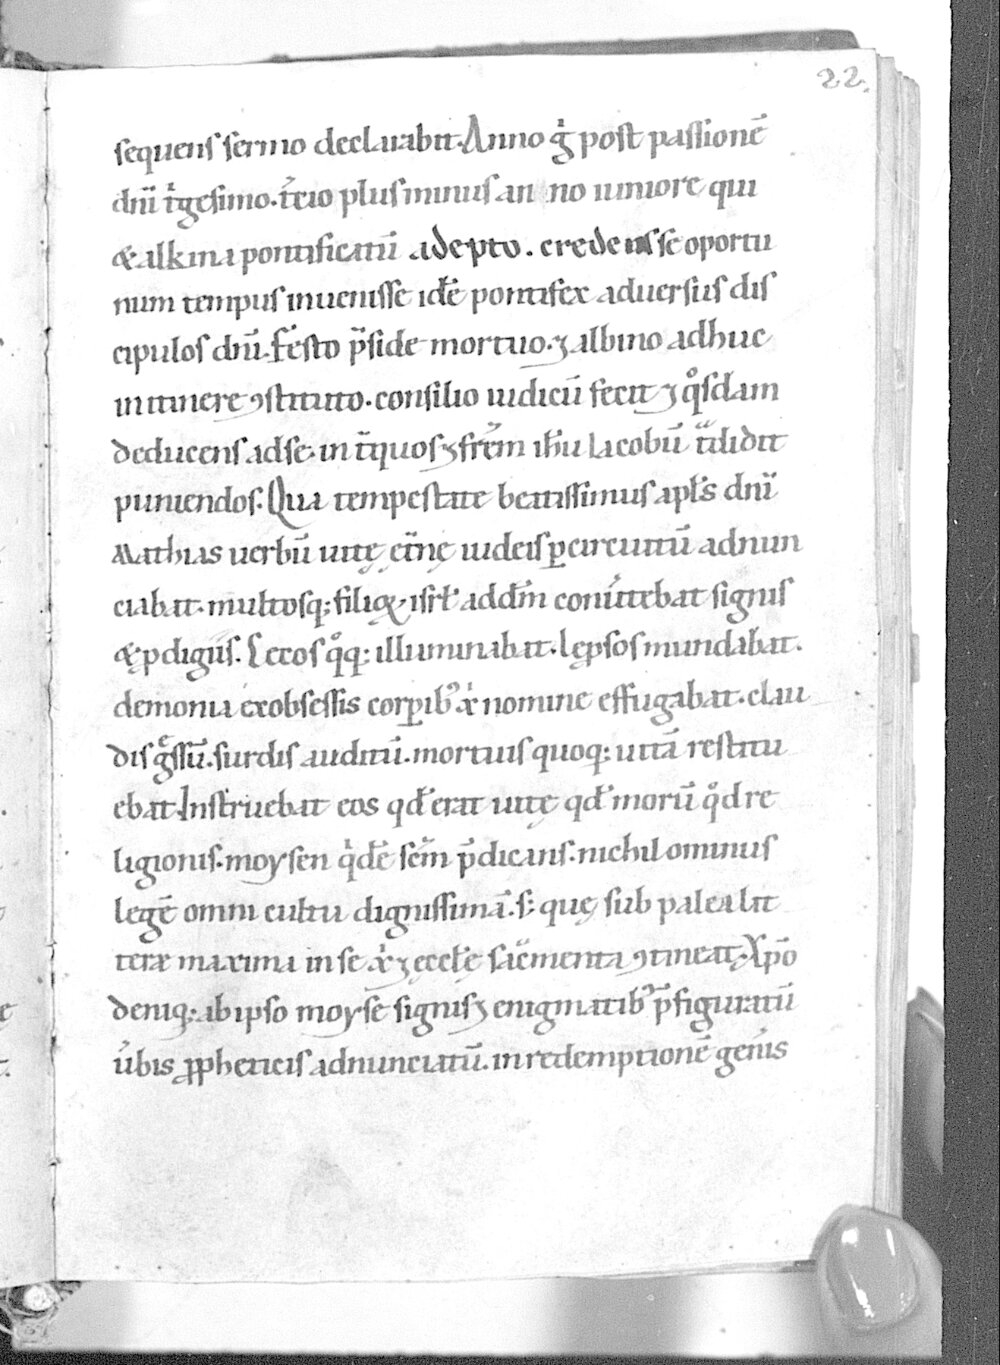 22.
sequens sermo declarabit. Anno gͥ post passionē
dnī tͥgesimo. t̓cio plus minus an no iuniore qui
& alkima pontificatū adepto. credens se oportu
num tempus inuenisse idē pontifex aduersus dis
cipulos dnī. festo p̄side mortuo. ⁊ albino adhuc
in itinere ꝯstituto. consilio iudicū fecit ⁊ qͦsdam
deducens ad se. in t̄ quos ⁊ frēm ih̄u Iacobū tͣdidit
puniendos. Qua tempestate beatissimus apl̄s dnī
Mathias uerbū uitę et̄nę iudeis ꝑ circuitū adnun
ciabat. multosq; filioꝝ isrl̄ ad dm̄ conūtebat signis
& ꝓdigiis. Cecos qͦq; illuminabat. leprosos mundabat.
demonia ex obsessis corꝑibꝰ xͥ nomine effugabat. clau
dis gͤssū. surdis auditū. mortuis quoq; uitā restitu
ebat. Instruebat eos qd̄ erat uitę qd̄ morū qͦd re
ligionis. moysen qͥdē scm̄ p̄dicans. nichilominus
legē omni cultu dignissimā. s; quę sub palea lit
teræ maxima in se xͥ ⁊ eccl̄ę sacͣmenta ꝯtineat. Xp̄o
deniq; ab ipso moyse signis ⁊ enigmatibꝰ p̄figuratū
ūbis ꝓpheticis adnunciatū. in redemptionē gen̄is